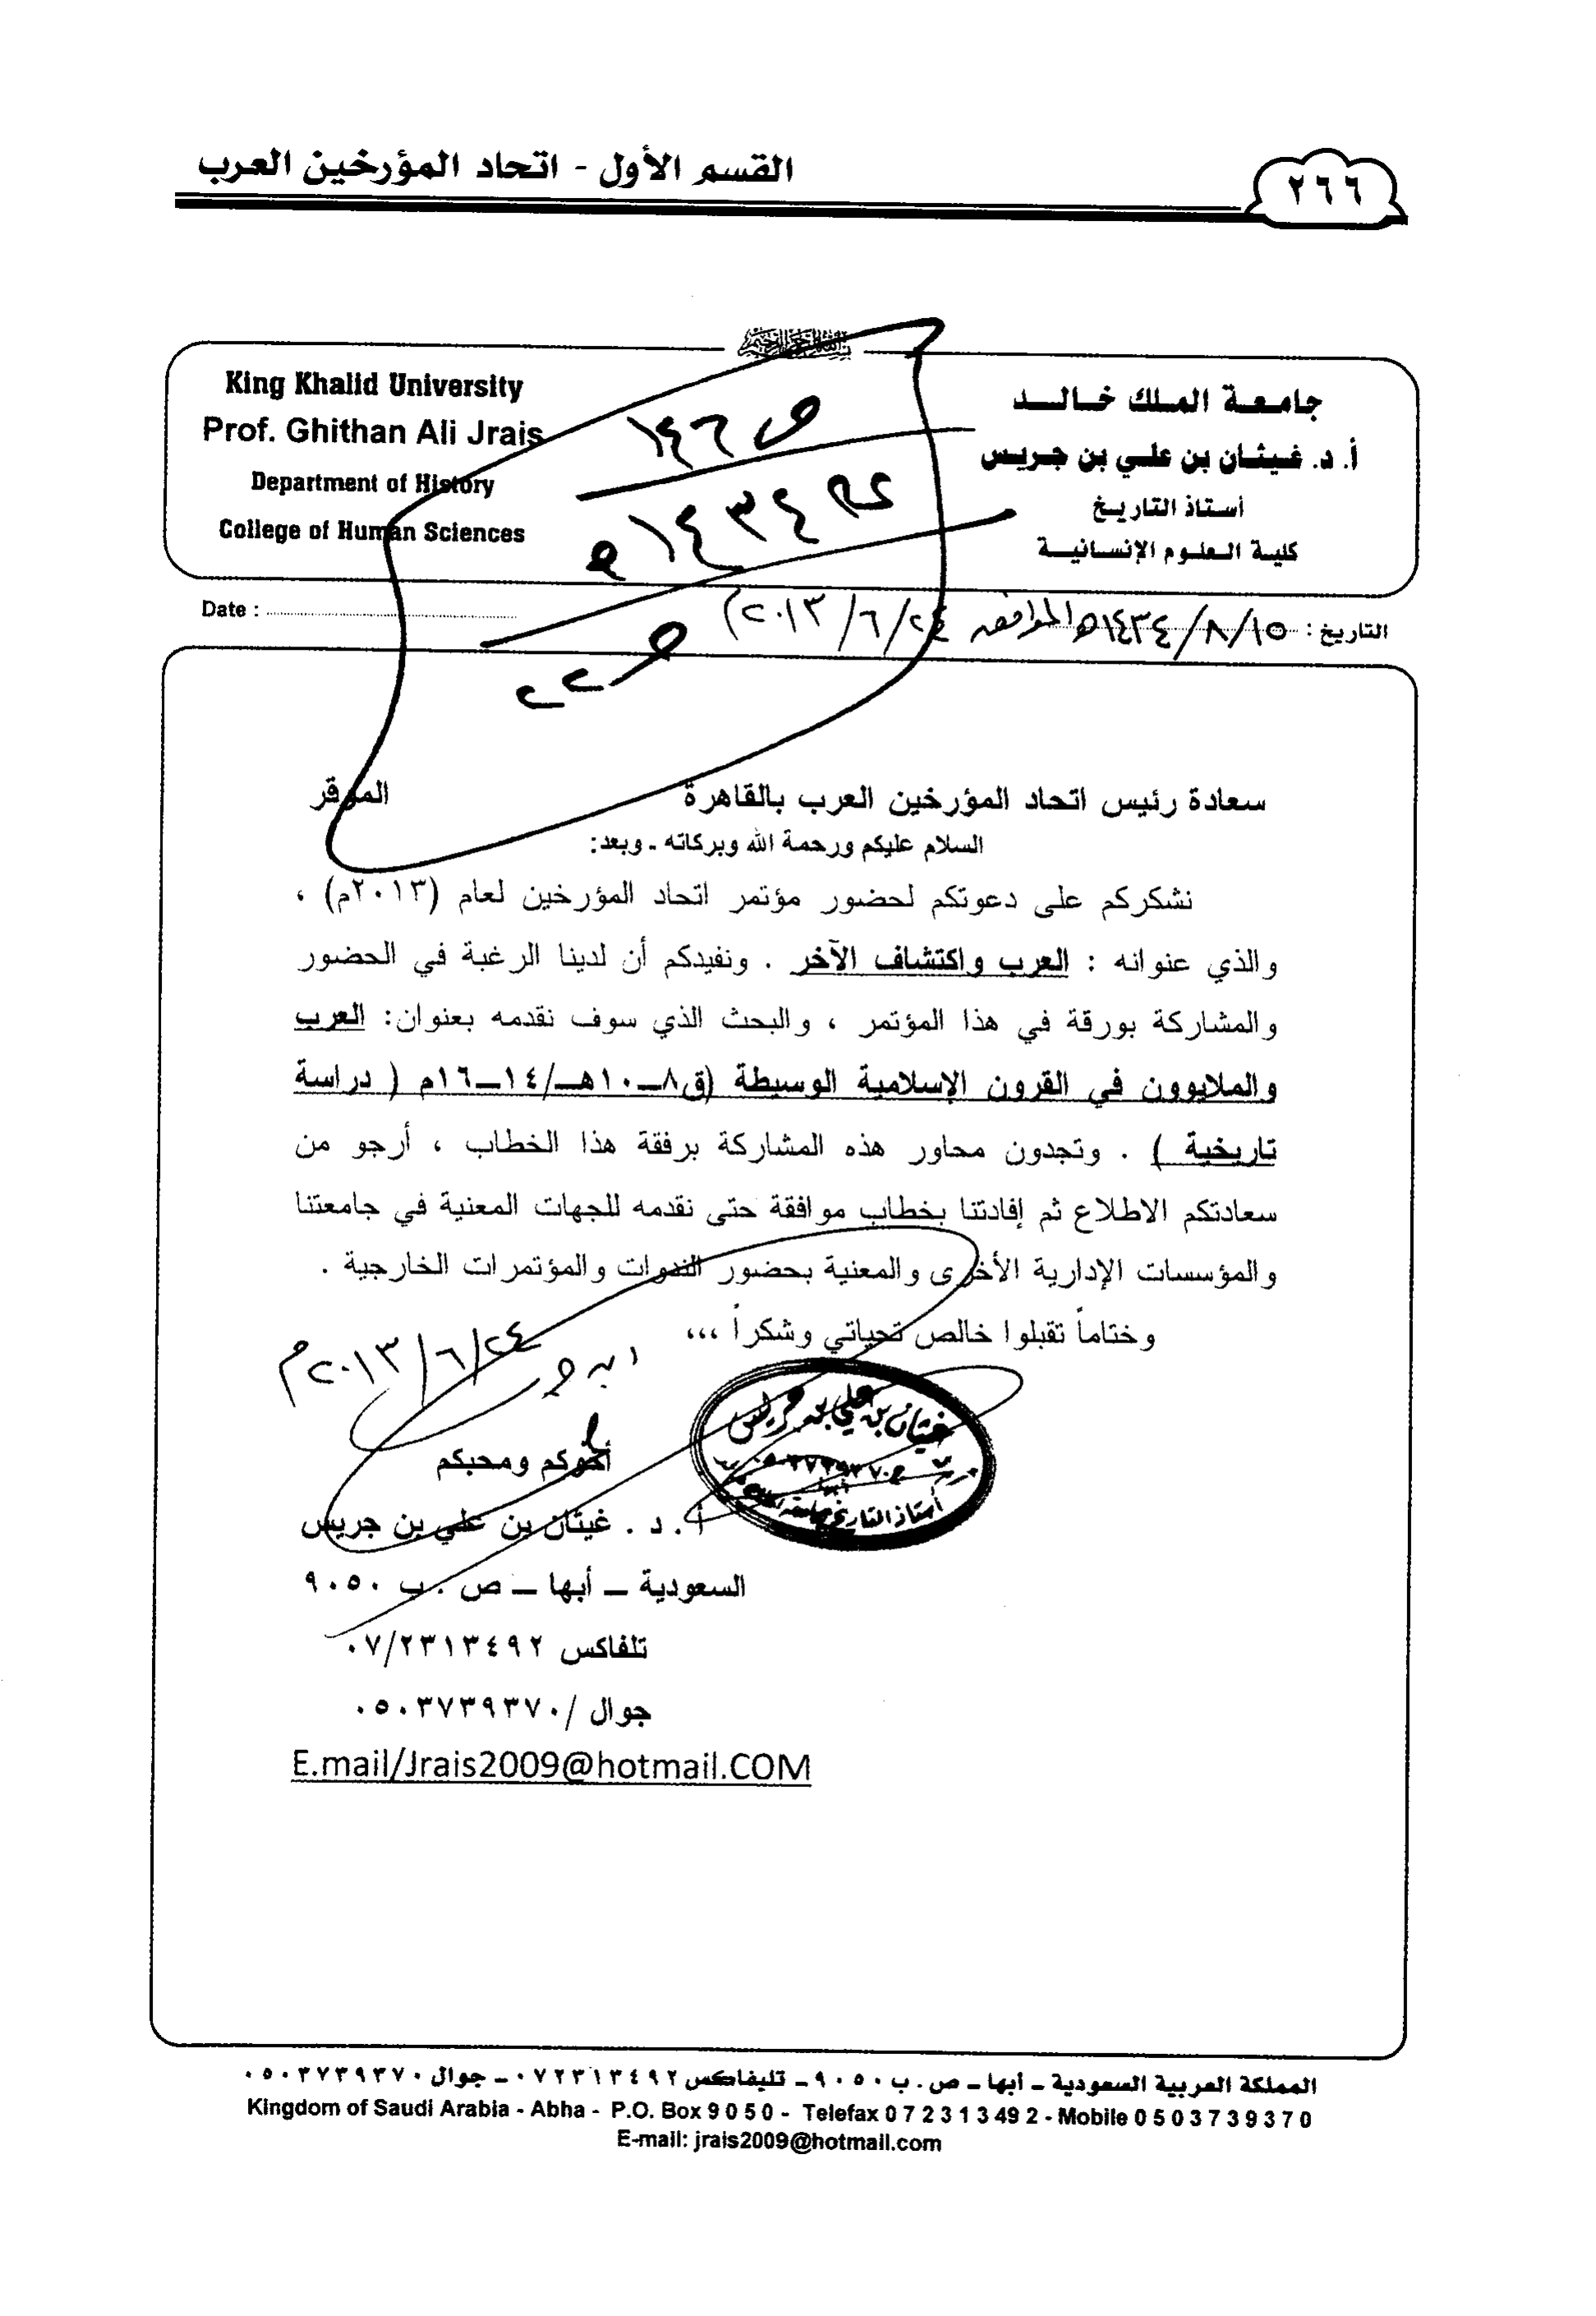 القسم الأول - اتحاد المؤرخين العرب
٢٦٦
جامعة الملك خالد
أ. د. غيثان بن علي بن جريس
أستاذ التاريخ
كلية العلوم الإنسانية
King Khalid University
Prof. Ghithan Ali Jrais
Department of History
College of Human Sciences
ص ١٤٦
١٤٣٤هـ
ص ٢٢
التاريخ : ١٥/٨/١٤٣٤هـ الموافق ٢٤/٦/٢٠١٣م
Date :
سعادة رئيس اتحاد المؤرخين العرب بالقاهرة الموقر
السلام عليكم ورحمة الله وبركاته ـ وبعد:
نشكركم على دعوتكم لحضور مؤتمر اتحاد المؤرخين لعام (٢٠١٣م) ،
والذي عنوانه : العرب واكتشاف الآخر . ونفيدكم أن لدينا الرغبة في الحضور
والمشاركة بورقة في هذا المؤتمر ، والبحث الذي سوف نقدمه بعنوان: العرب
والملايوون في القرون الإسلامية الوسيطة (ق٨–١٠هـ/١٤–١٦م ( دراسة
تاريخية ) . وتجدون محاور هذه المشاركة برفقة هذا الخطاب ، أرجو من
سعادتكم الاطلاع ثم إفادتنا بخطاب موافقة حتى نقدمه للجهات المعنية في جامعتنا
والمؤسسات الإدارية الأخرى والمعنية بحضور الندوات والمؤتمرات الخارجية .
وختاماً تقبلوا خالص تحياتي وشكراً ،،،
٢٤/٦/٢٠١٣م
أخوكم ومحبكم
أ . د . غيثان بن علي بن جريس
غيثان بن علي بن جريس
السعودية – أبها – ص . ب ٩٠٥٠
تلفاكس ٠٧/٢٣١٣٤٩٢
جوال /٠٥٠٣٧٣٩٣٧٠
E.mail/Jrais2009@hotmail.COM
المملكة العربية السعودية – أبها – ص . ب ٩٠٥٠ – تليفاكس ٠٧٢٣١٣٤٩٢ – جوال ٠٥٠٣٧٣٩٣٧٠
Kingdom of Saudi Arabia - Abha - P.O. Box 9 0 5 0 - Telefax 0 7 2 3 1 3 49 2 - Mobile 0 5 0 3 7 3 9 3 7 0
E-mail: jrais2009@hotmail.com